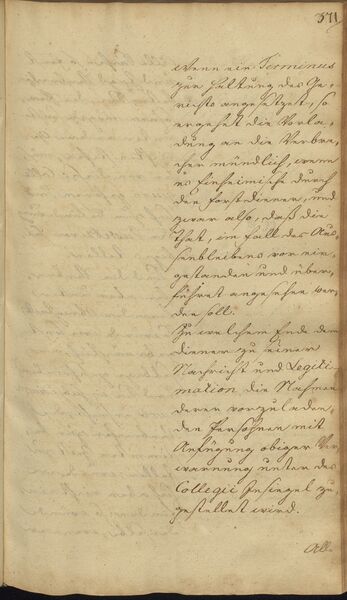 371
Wenn ein Terminus
zur Haltung des Ge-
richts angesetzet, so
ergehet die Vorla-
dung an die Verbre-
cher mündlich, wenn
es Einheimische durch
den Forstdiener, und
zwar also, daß die
That, im Fall des Aus-
senbleibens vor ein-
gestanden und über-
führet angesehen wer-
den soll.
Zu welchem Ende dem
diener zu seiner
Nachricht und Legiti-
mation die Nahmen
deren vorzuladen-
den Persohnen mit
Anfügung obiger Ver-
warnung unter des
Collegii Insiegel zu-
gestellet wird.